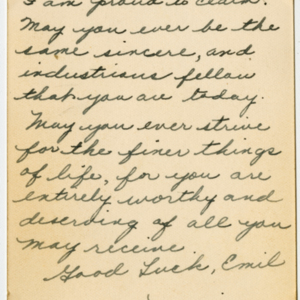 I am proud to claim.
May you ever be the
same sincere, and
industrious fellow
that you are today.
May you ever strive
for the finer things
of life, for you are
entirely worthy and
deserving of all you
may receive.
Good Luck, Emil